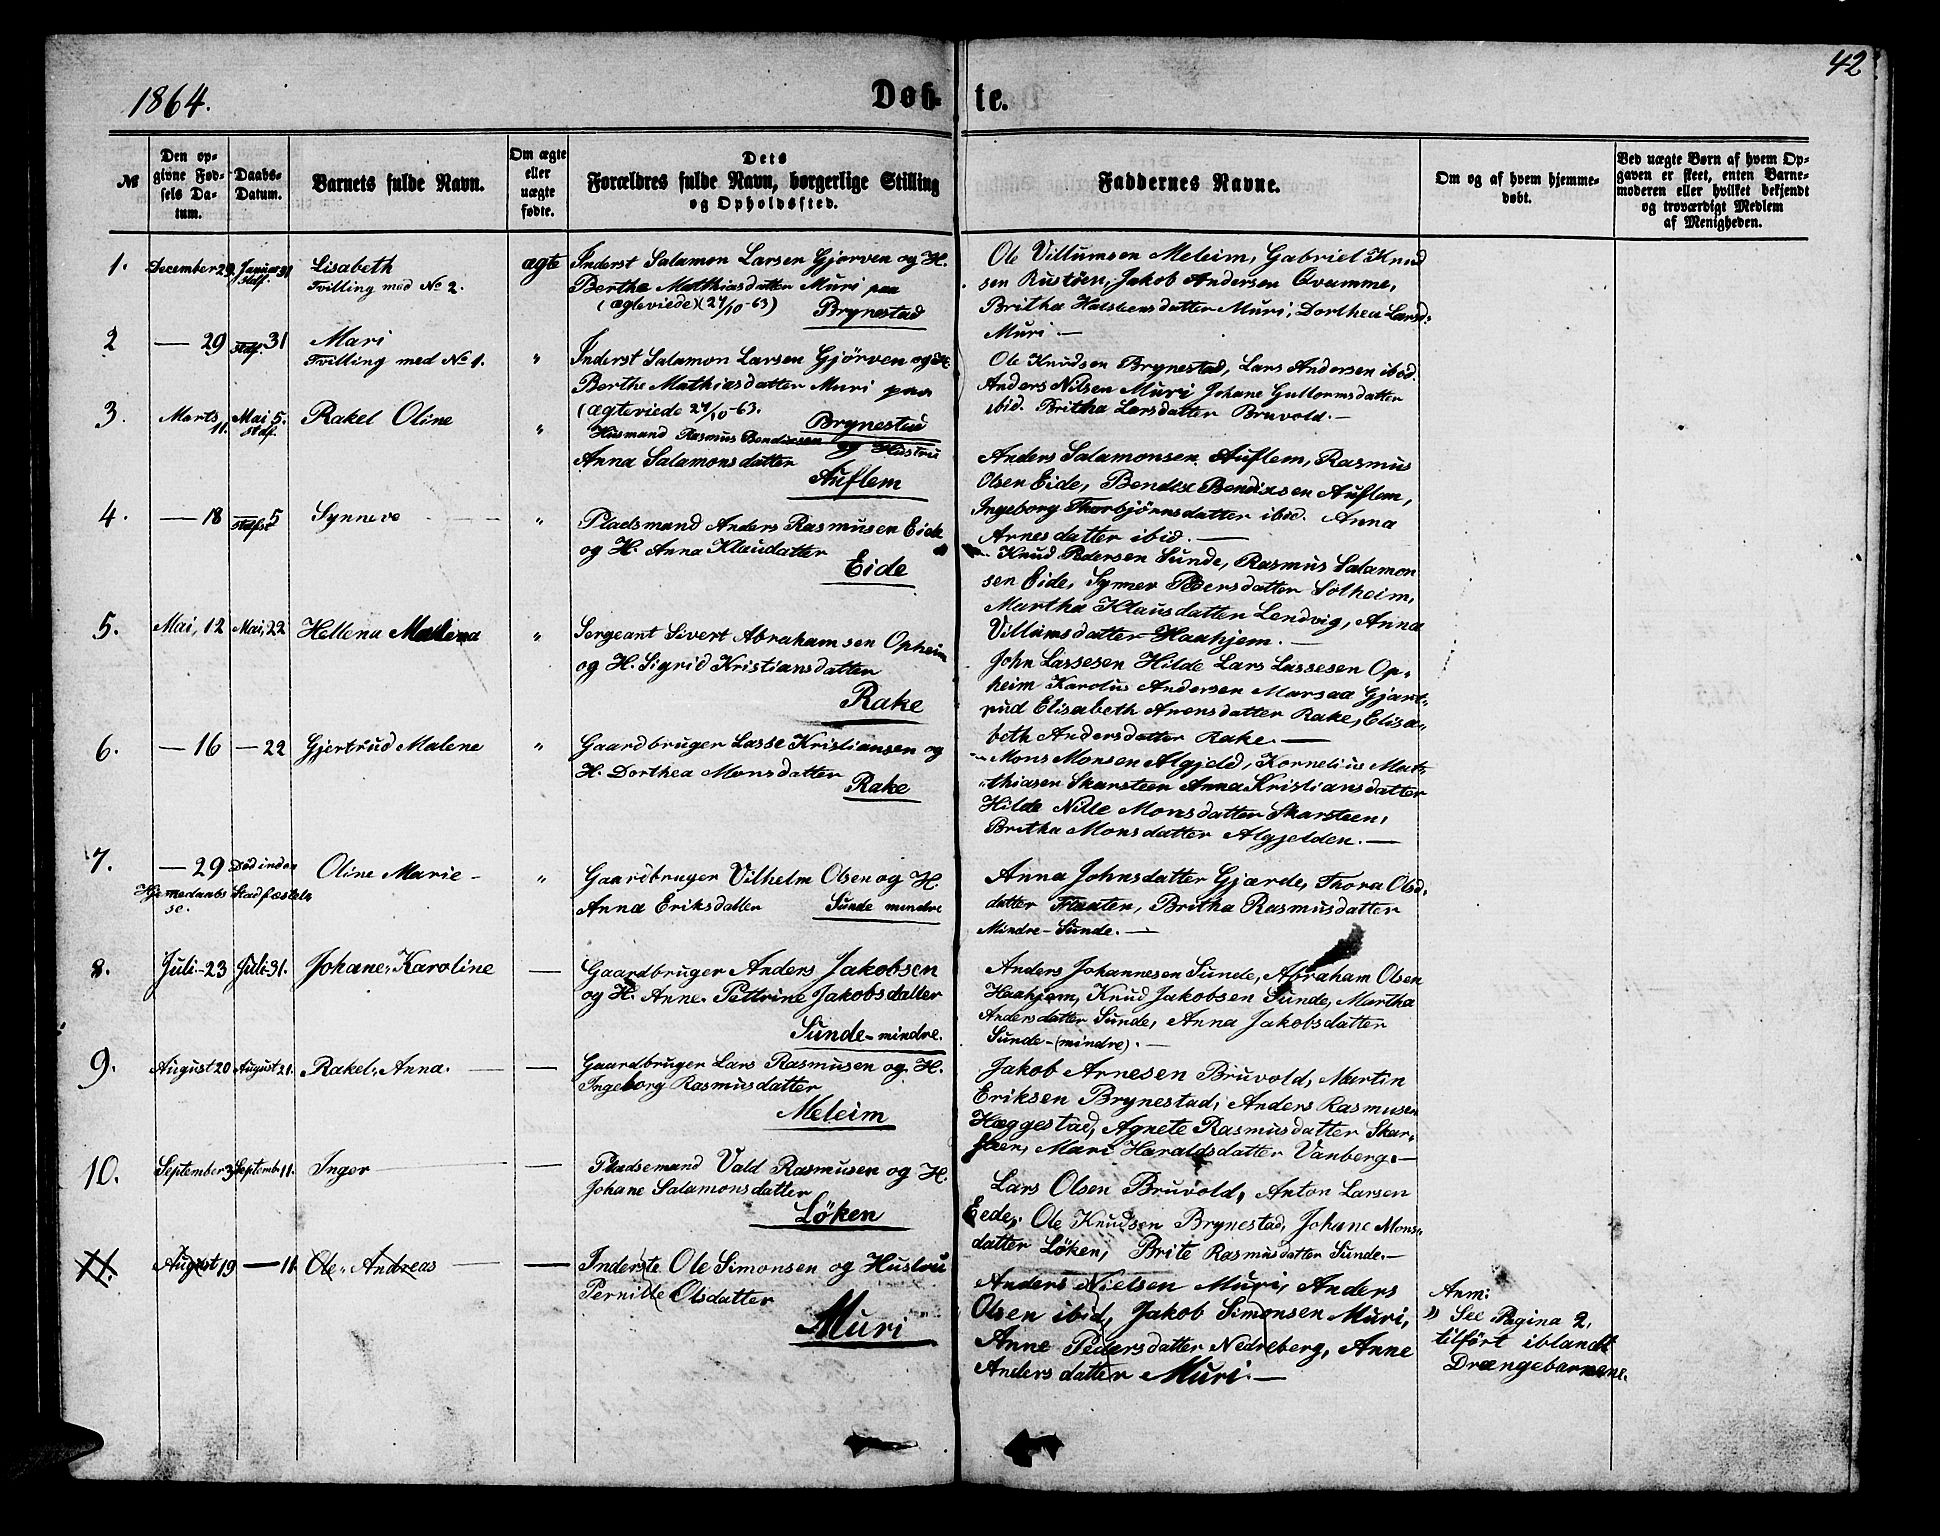 42
1864.
Døb- te.
№
Den op-
givne Fød-
sels Da-
tum.
Daabs-
Datum.
Barnets fulde Navn.
Om ægte
eller
uægte
fødte.
Dets
Forældres fulde Navn, borgerlige Stilling
og Opholdssted.
Faddernes Navne.
Om og af hvem hjemme-
døbt.
Ved uægte Børn af hvem Op-
gaven er skeet, enten Barne-
moderen eller hvilket bekjendt
og troværdigt Medlem
af Menigheden.
1.
December 29.
Januar 31
stdf.
Lisabeth
Tvilling med No 2.
ægte
Inderst Salamon Larsen Gjørven og H.
Berthe Mathiasdatter Muri paa
(ægteviede) (27/10-63)
Brynestad
Ole Villumsen Meleim, Gabriel Knud
sen Rustøen, Jakob Andersen Qvamme,
Britha Halsteensdatter Muri, Dorthea Larsd:
Muri —
2
— 29
stdf. 31
Mari
Tvilling med No 1.
"
Inderst Salamon Larsen Gjørven og H.
Berthe Mathiasdatter Muri paa
(ægteviede 27/10-63.
Brynestad
Ole Knudsen Brynestad, Lars Andersen ibid.
Anders Nilsen Muri Johane Guttormsdatter
ibid. Britha Larsdatter Bruvold. —
3.
Marts 11.
Mai 5.
stdf.
Rakel Oline
"
Husmand Rasmus Bendixsen og Hustru
Anna Salamonsdatter
Auflem
Anders Salamonsen Auflem, Rasmus
Olsen Eide, Bendix Bendixsen Auflem,
Ingeborg Thorbjørnsdatter ibid. Anna
Arnesdatter ibid. —
4.
— 18
5
Synneve
"
Pladsmand Anders Rasmusen Eide
og H. Anna Klausdatter
Eide
Knud Pedersen Sunde, Rasmus Salamon
sen Eide, Synner Pedersdatter Solheim,
Martha Klausdatter Lendvig, Anna
Villumsdatter Haahjem. —
5.
Mai, 12
Mai, 22
Hellena Malina
"
Sergeant Sivert Abrahamsen Opheim
og H. Sigrid Kristiansdatter
Rake
John Lassesen Hilde Lars Lassesen Op-
heim Karolus Andersen Marsaa Gjært-
rud Elisabeth Arensdatter Rake, Elisa-
beth Andersdatter Rake. —
6.
— 16
— 22
Gjertrud Malene
"
Gaardbruger Lasse Kristiansen og
H. Dorthea Monsdatter
Rake
Mons Monsen Algjeld, Kornelius Mat-
thiasen Skarsteen Anna Kristiansdatter
Hilde Nille Monsdatter Skarsteen,
Britha Monsdatter Algjelden. —
7.
— 29
Død inden
Hjemedaabs Stadfæstel-
se.
Oline Marie —
"
Gaardbruger Vilhelm Olsen og H.
Anna Eriksdatter
Sunde mindre
Anna Johnsdatter Gjærde, Thora Olsd:
datter Flaaten, Britha Rasmusdatter
Mindre-Sunde. —
8.
Juli-23
Juli 31.
Johane Karoline
—
Gaardbruger Anders Jakobsen
og H. Anne Pettrine Jakobsdatter
Sunde-mindre.
Anders Johannesen Sunde, Abraham Olsen
Haahjem, Knud Jakobsen Sunde, Martha
Andersdatter Sunde, Anna Jakobsdatter
Sunde-(mindre). —
9.
August 20
August 21.
Rakel Anna. —
—
Gaardbruger Lars Rasmusen og H.
Ingeborg Rasmusdatter
Meleim
Jakob Arnesen Bruvold, Martin
Eriksen Brynestad, Anders Rasmusen
Hæggestad, Agnete Rasmusdatter Skar-
steen, Mari Haraldsdatter Vanberg. —
10.
September 3
Septemb. 11.
Inger —
—
Pladsemand Vald Rasmusen og H.
Johane Salamonsdatter
Løken
Lars Olsen Bruvold, Anton Larsen
Eede, Ole Knudsen Brynestad, Johane Mons-
datter Løken, Brite Rasmusdatter Sunde. —
11.
August 19
— 11.
Ole Andreas —
—
Inderste Ole Simonsen og Hustru
Pernille Olsdatter
Muri
Anders Nielsen Muri, Anders
Olsen ibid, Jakob Simonsen Muri,
Anne Pedersdatter Nedreberg, Anne
Andersdatter Muri. —
Anm:
See Pagina 2,
tilført iblandt
Drængebarnene.